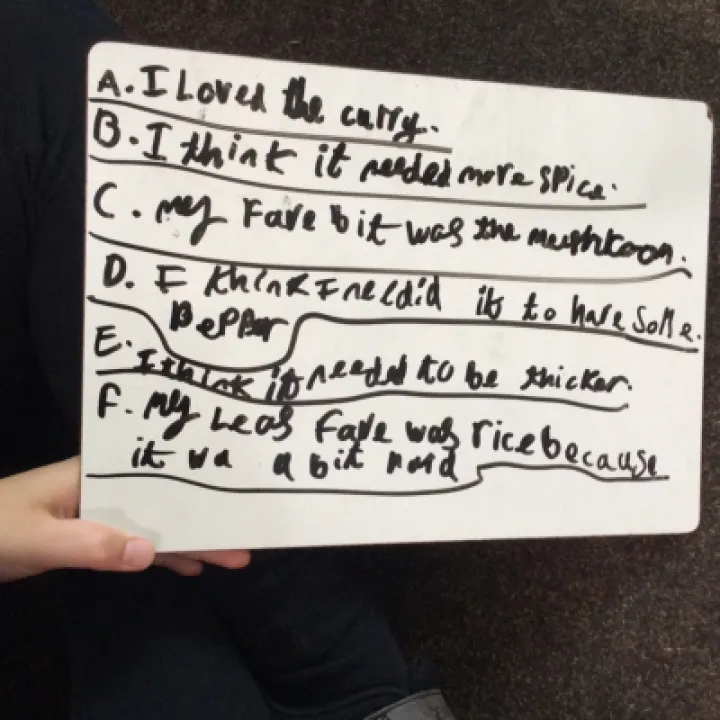 A. I Loved the curry.
B. I think it needed more spice.
C. my Fave bit was the mushroon.
D. I think I needid it to have some
Pepper
E. I think it needed to be thicker.
F. my Leas Fave was rice because
it wa a bit hard